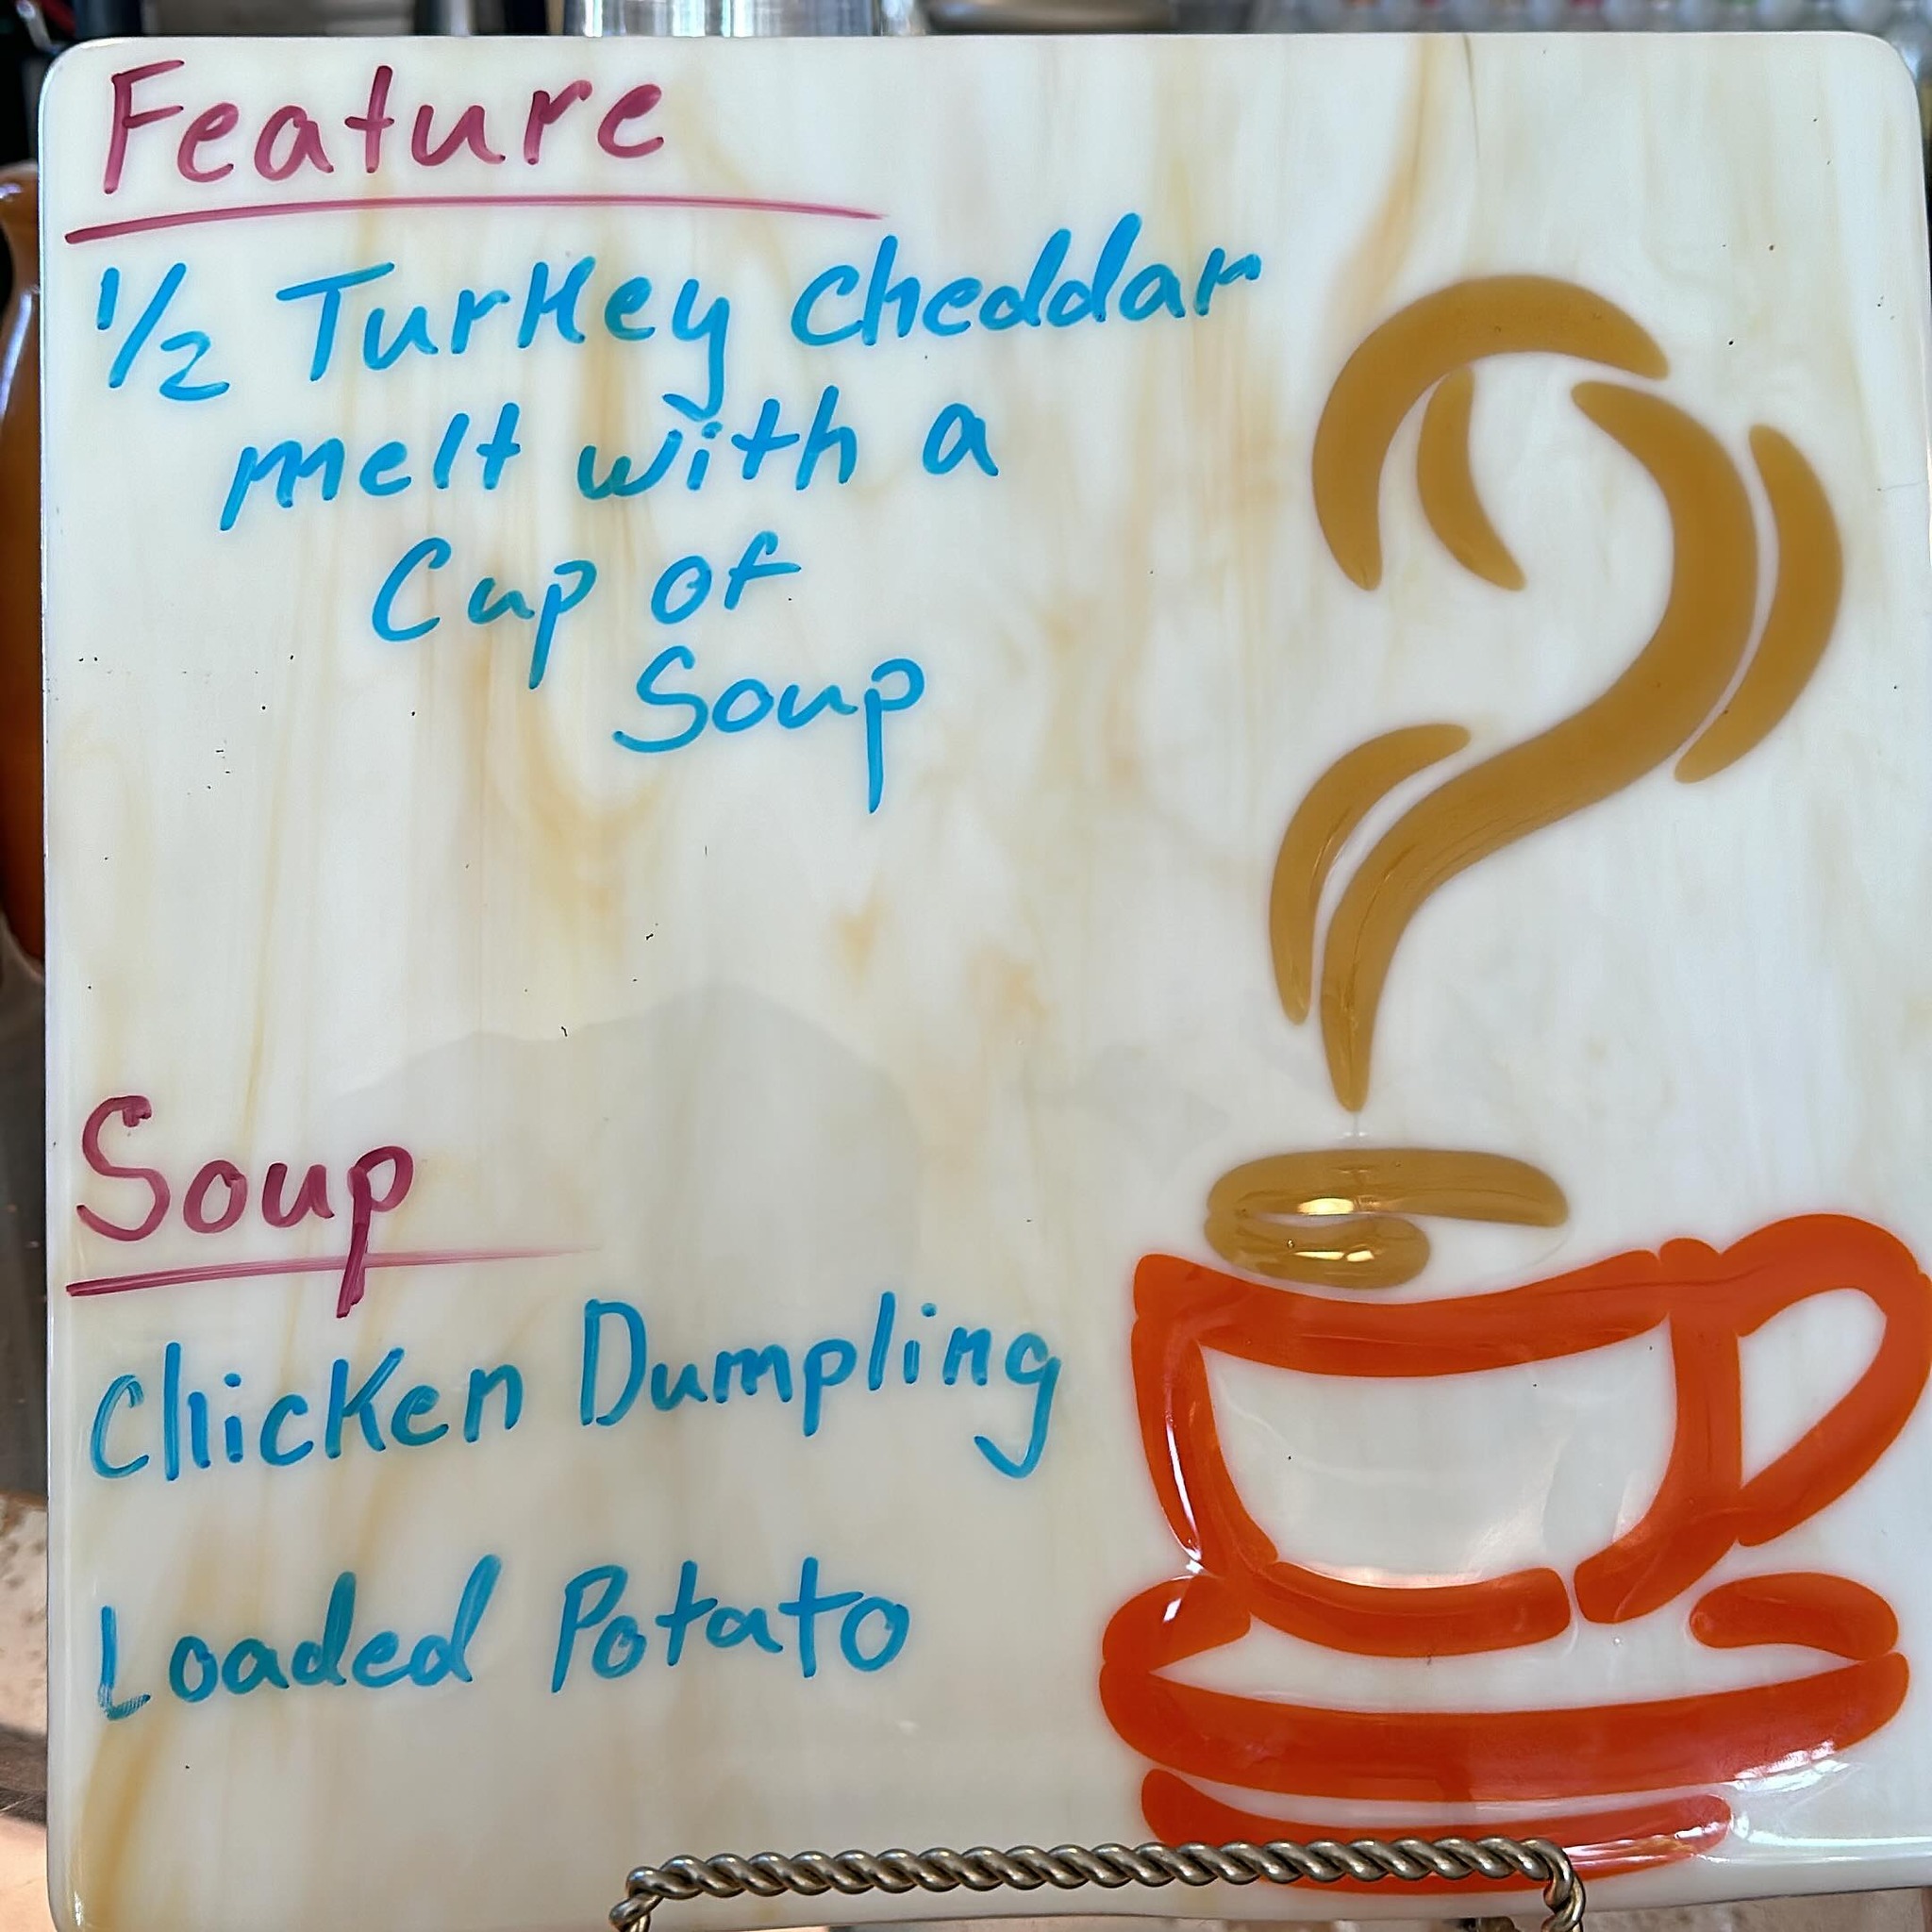 Feature
1/2 Turkey Cheddar
melt with a
Cup of
Soup
Soup
Chicken Dumpling
Loaded Potato